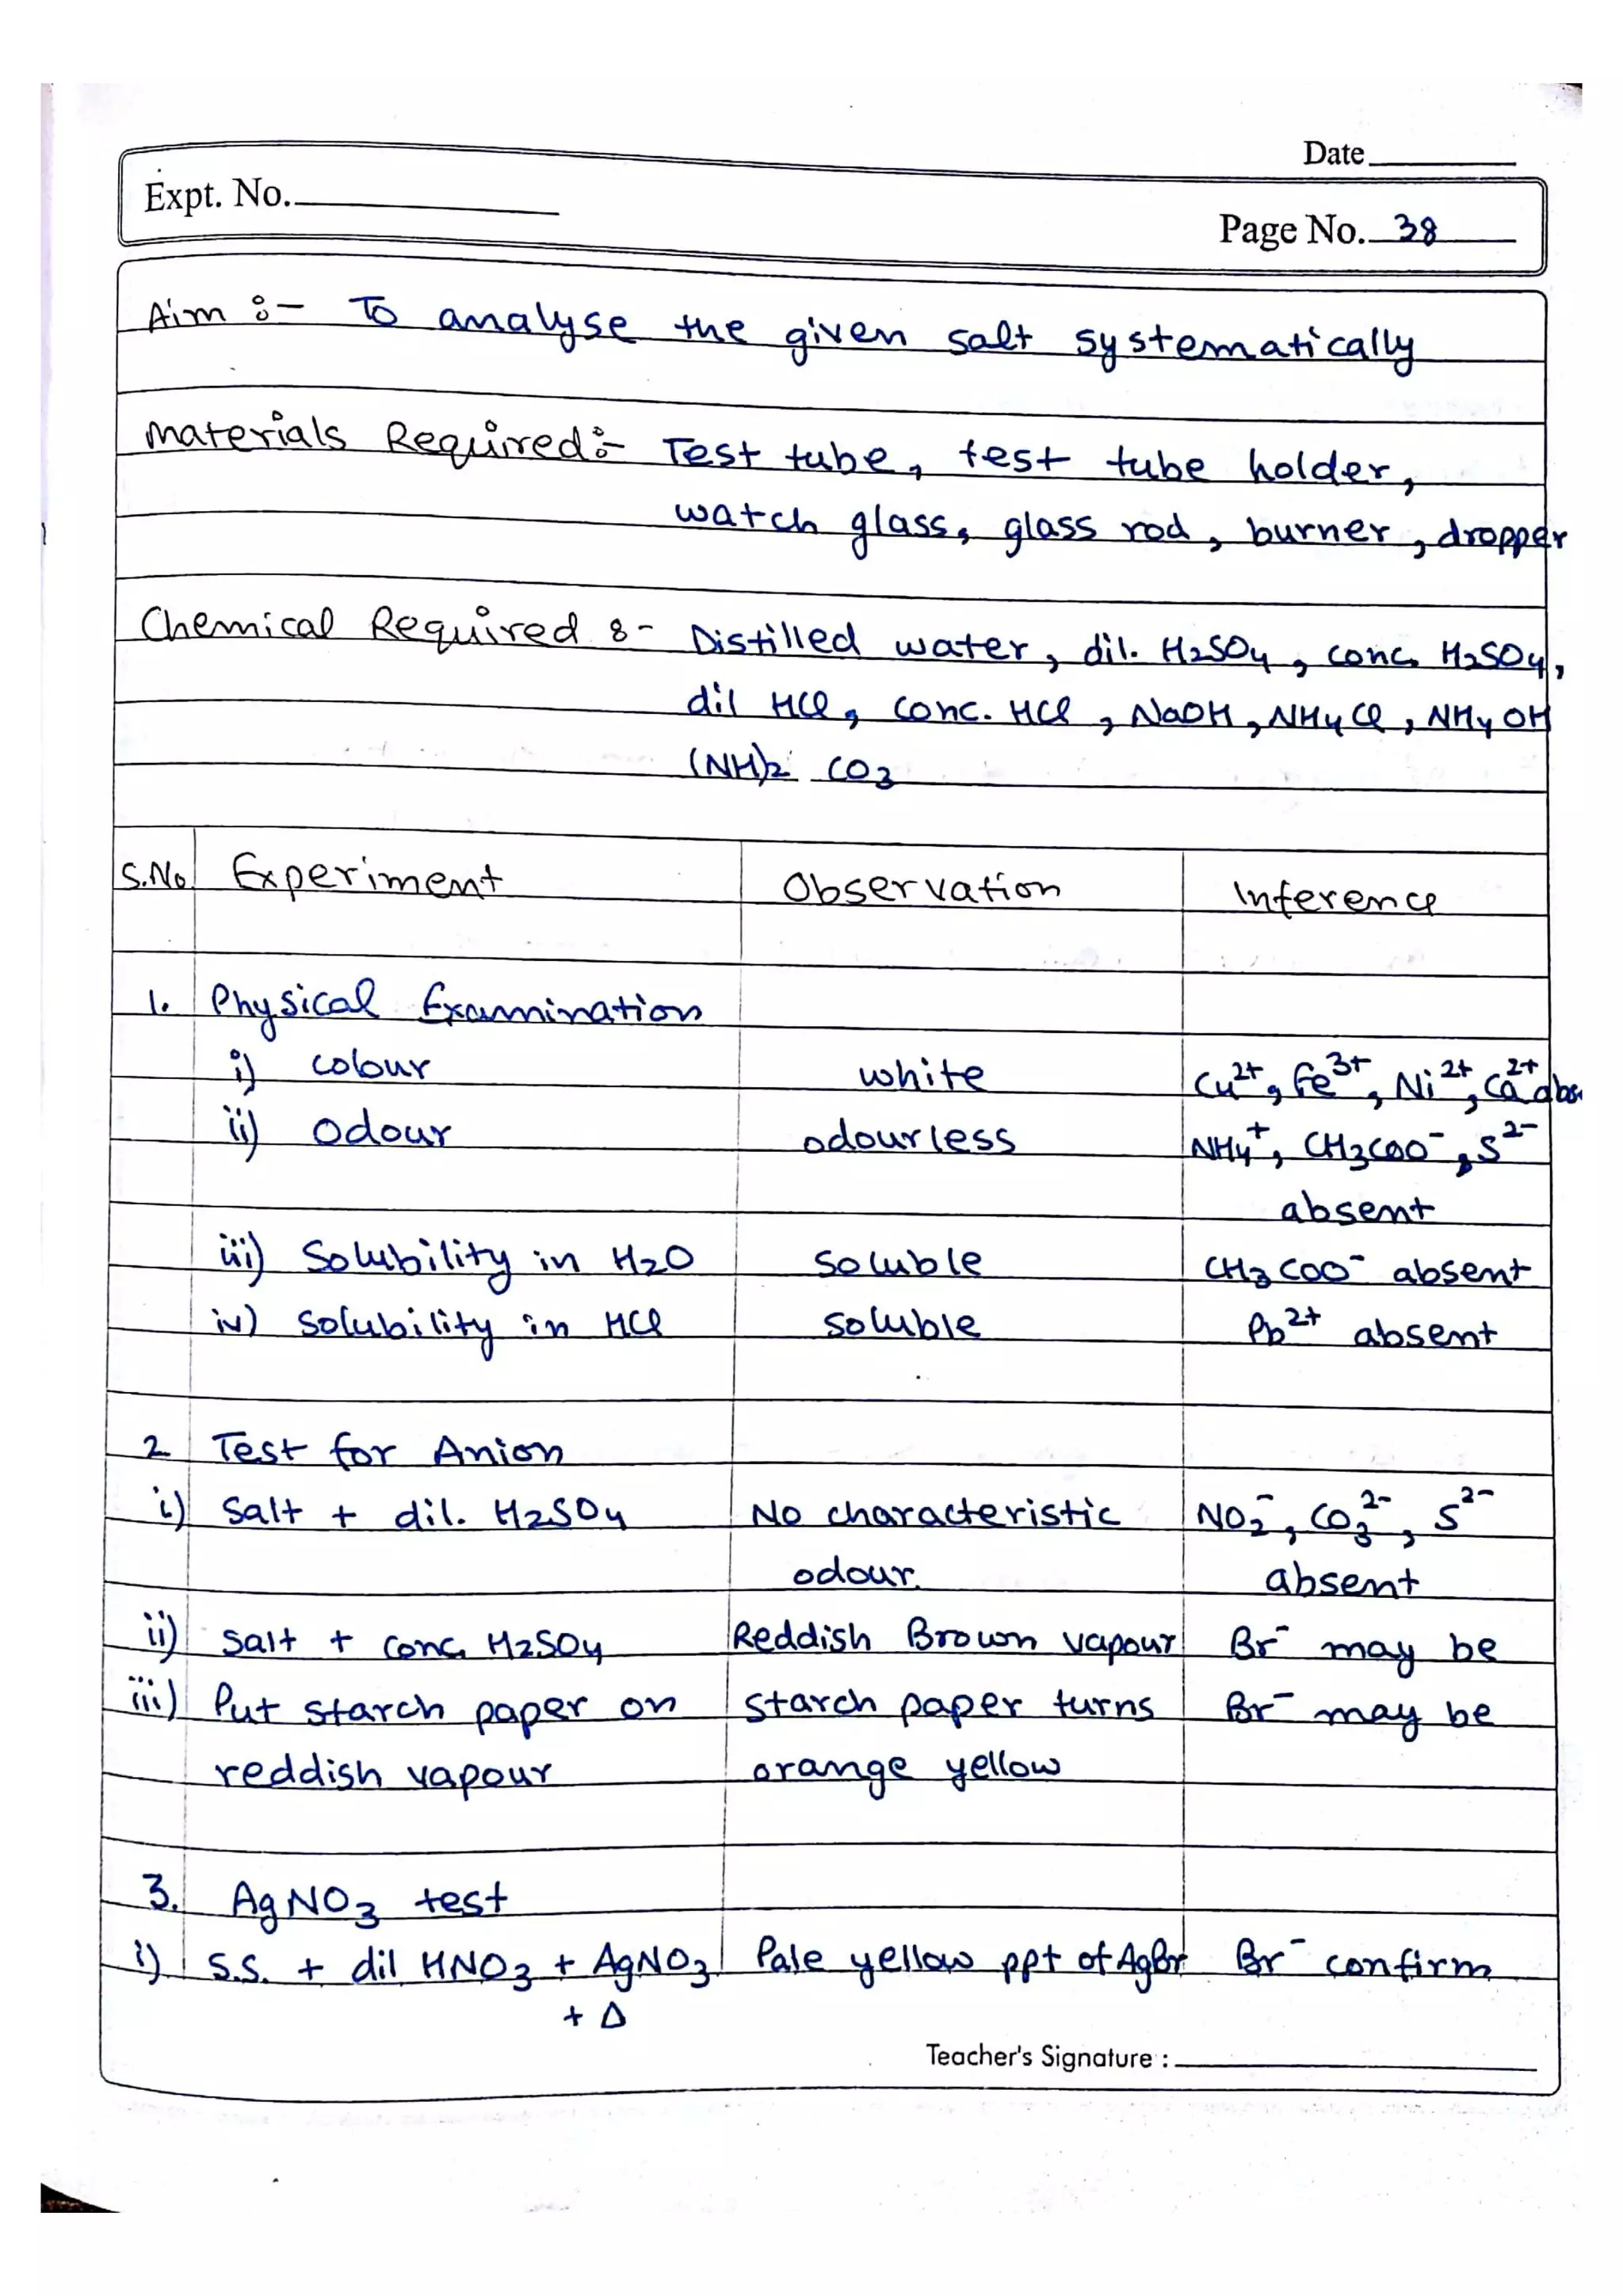 Date
Expt. No.
Page No. 38
Aim :- To analyse the given salt systematically
Materials Required:- Test tube, test tube holder,
watch glass, glass rod, burner, dropper
Chemical Required :- Distilled water, dil. H2SO4, conc. H2SO4,
dil HCl, conc. HCl, NaOH, NH4Cl, NH4OH
(NH)2 CO3
S.No Experiment Observation Inference
1. Physical Examination
i) colour white Cu²⁺, Fe³⁺, Ni²⁺, Ca²⁺ abs
ii) odour odourless NH4⁺, CH3COO⁻, S²⁻
absent
iii) Solubility in H2O soluble CH3COO⁻ absent
iv) solubility in HCl soluble Pb²⁺ absent
2 Test for Anion
i) salt + dil. H2SO4 No characteristic NO2⁻, CO3²⁻, S²⁻
odour. absent
ii) salt + conc. H2SO4 Reddish Brown vapour Br⁻ may be
iii) Put starch paper on starch paper turns Br⁻ may be
reddish vapour orange yellow
3. AgNO3 test
i) S.S. + dil HNO3 + AgNO3 Pale yellow ppt of AgBr Br⁻ confirm
+ Δ
Teacher's Signature :